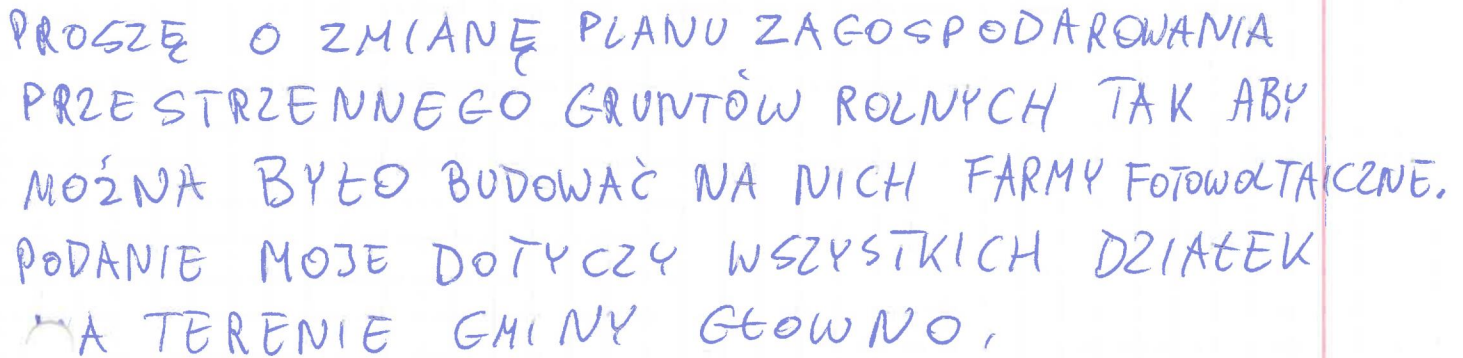 PROSZĘ O ZMIANĘ PLANU ZAGOSPODAROWANIA
PRZESTRZENNEGO GRUNTÓW ROLNYCH TAK ABY
MOŻNA BYŁO BUDOWAĆ NA NICH FARMY FOTOWOLTAICZNE.
PODANIE MOJE DOTYCZY WSZYSTKICH DZIAŁEK
NA TERENIE GMINY GŁOWNO.